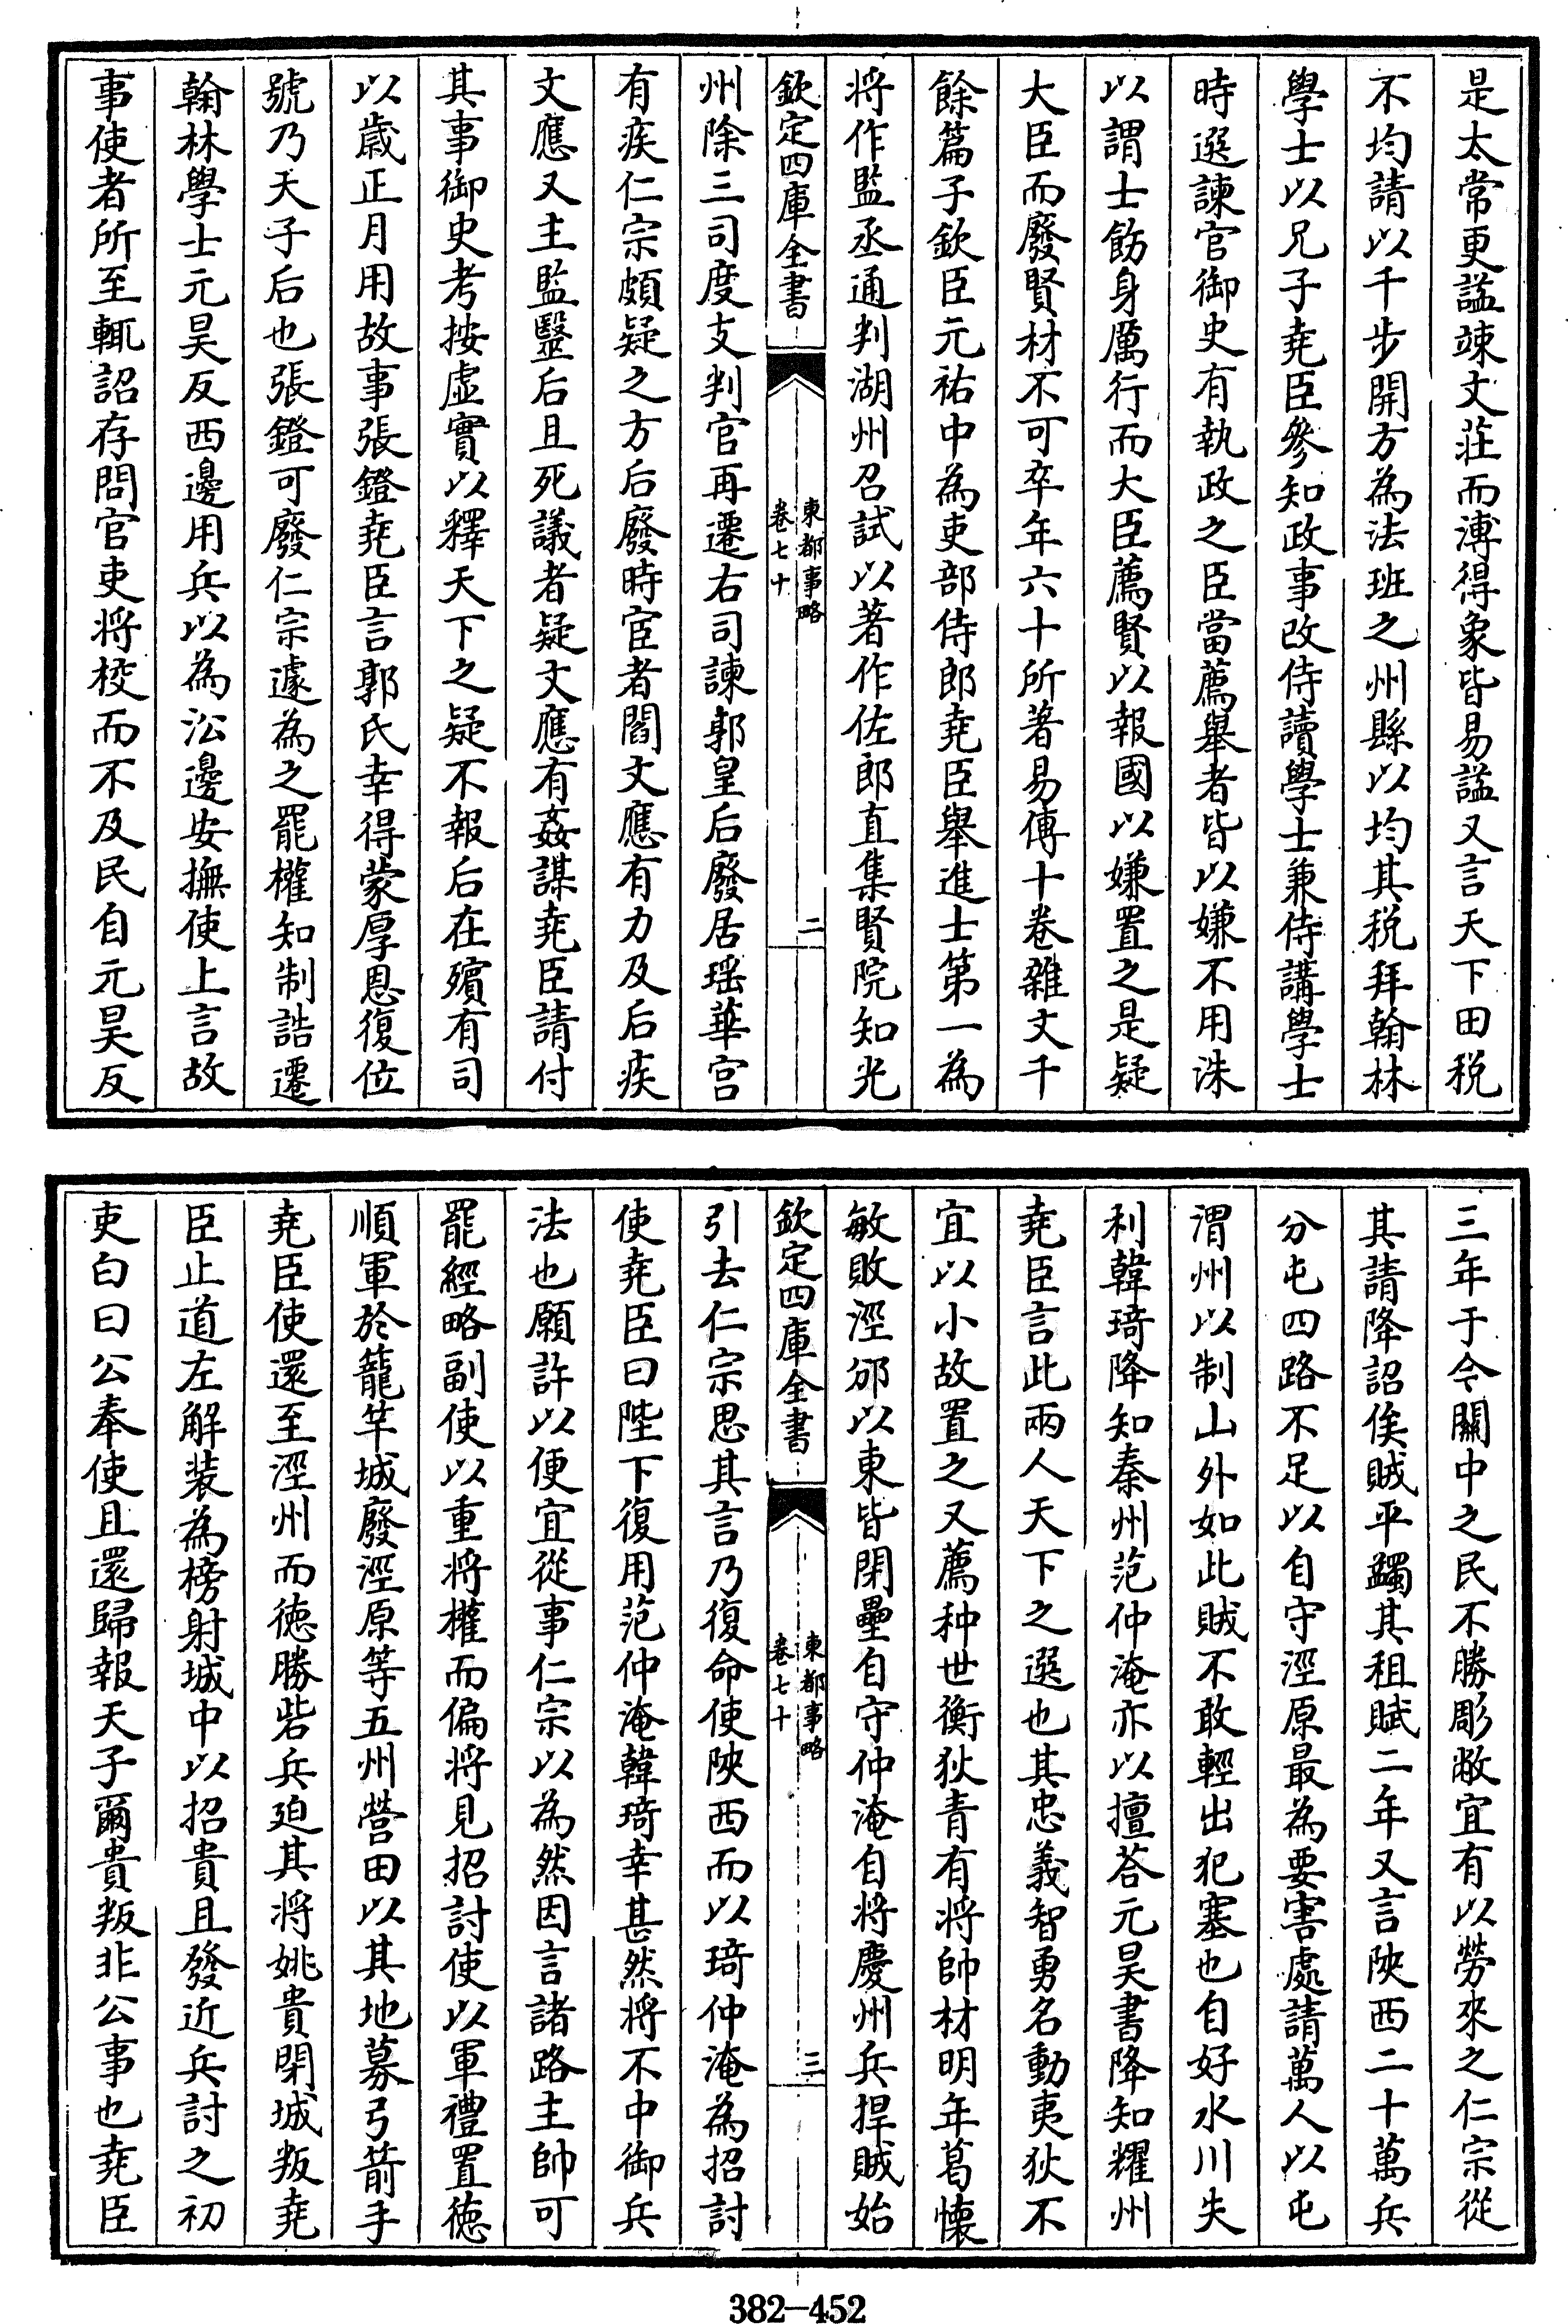 是太常更諡竦文莊而溥得象皆易諡又言天下田税
不均請以千步開方為法班之州縣以均其税拜翰林
學士以兄子堯臣參知政事改侍讀學士兼侍講學士
時選諫官御史有執政之臣當薦舉者皆以嫌不用洙
以謂士飭身厲行而大臣薦賢以報國以嫌置之是疑
大臣而廢賢材不可卒年六十所著易傳十卷雜文千
餘篇子欽臣元祐中為吏部侍郎堯臣舉進士第一為
將作監丞通判湖州召試以著作佐郎直集賢院知光
欽定四庫全書
東都事略
卷七十
二
州除三司度支判官再遷右司諫郭皇后廢居瑶華宫
有疾仁宗頗疑之方后廢時宦者閻文應有力及后疾
文應又主監毉后且死議者疑文應有姦謀堯臣請付
其事御史考按虛實以釋天下之疑不報后在殯有司
以歲正月用故事張鐙堯臣言郭氏幸得蒙厚恩復位
號乃天子后也張鐙可廢仁宗遽為之罷權知制誥遷
翰林學士元昊反西邊用兵以為㳂邊安撫使上言故
事使者所至輒詔存問官吏將校而不及民自元昊反
三年于今關中之民不勝彫敝宜有以勞來之仁宗從
其請降詔俟賊平蠲其租賦二年又言陜西二十萬兵
分屯四路不足以自守涇原最為要害處請萬人以屯
渭州以制山外如此賊不敢輕出犯塞也自好水川失
利韓琦降知秦州范仲淹亦以擅荅元昊書降知耀州
堯臣言此兩人天下之選也其忠義智勇名動夷狄不
宜以小故置之又薦种世衡狄青有將帥材明年葛懷
敏敗涇邠以東皆閉壘自守仲淹自將慶州兵捍賊始
欽定四庫全書
東都事略
卷七十
三
引去仁宗思其言乃復命使陜西而以琦仲淹為招討
使堯臣曰陛下復用范仲淹韓琦幸甚然將不中御兵
法也願許以便宜從事仁宗以為然因言諸路主帥可
罷經略副使以重將權而偏將見招討使以軍禮置徳
順軍於籠竿城廢涇原等五州營田以其地募弓箭手
堯臣使還至涇州而徳勝砦兵廹其將姚貴閉城叛堯
臣止道左解装為榜射城中以招貴且發近兵討之初
吏白曰公奉使且還歸報天子爾貴叛非公事也堯臣
382-452